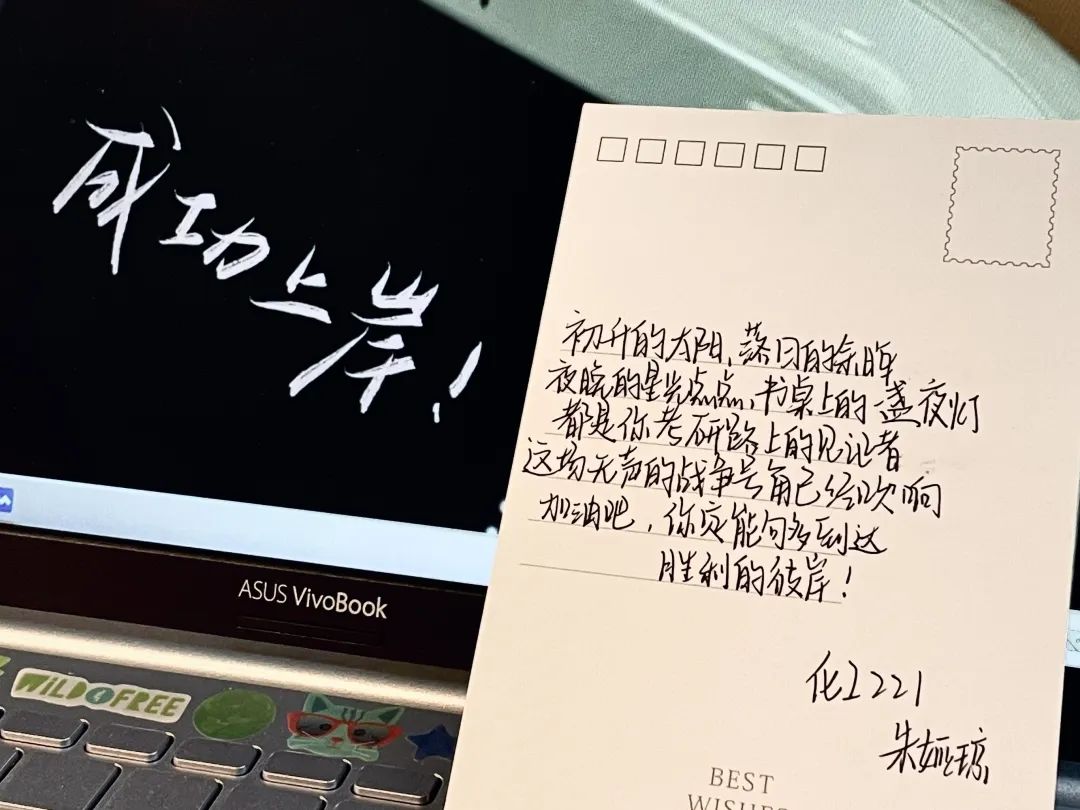 成功上岸!
ASUS VivoBook
WiLD & FREE
初升的太阳,落日的余晖
夜晚的星光点点、书桌上的一盏夜灯
都是你考研路上的见证者
这场无声的战争号角已经吹响
加油吧,你定能够到达
胜利的彼岸!
化工221
朱娅琼
BEST
WISHES